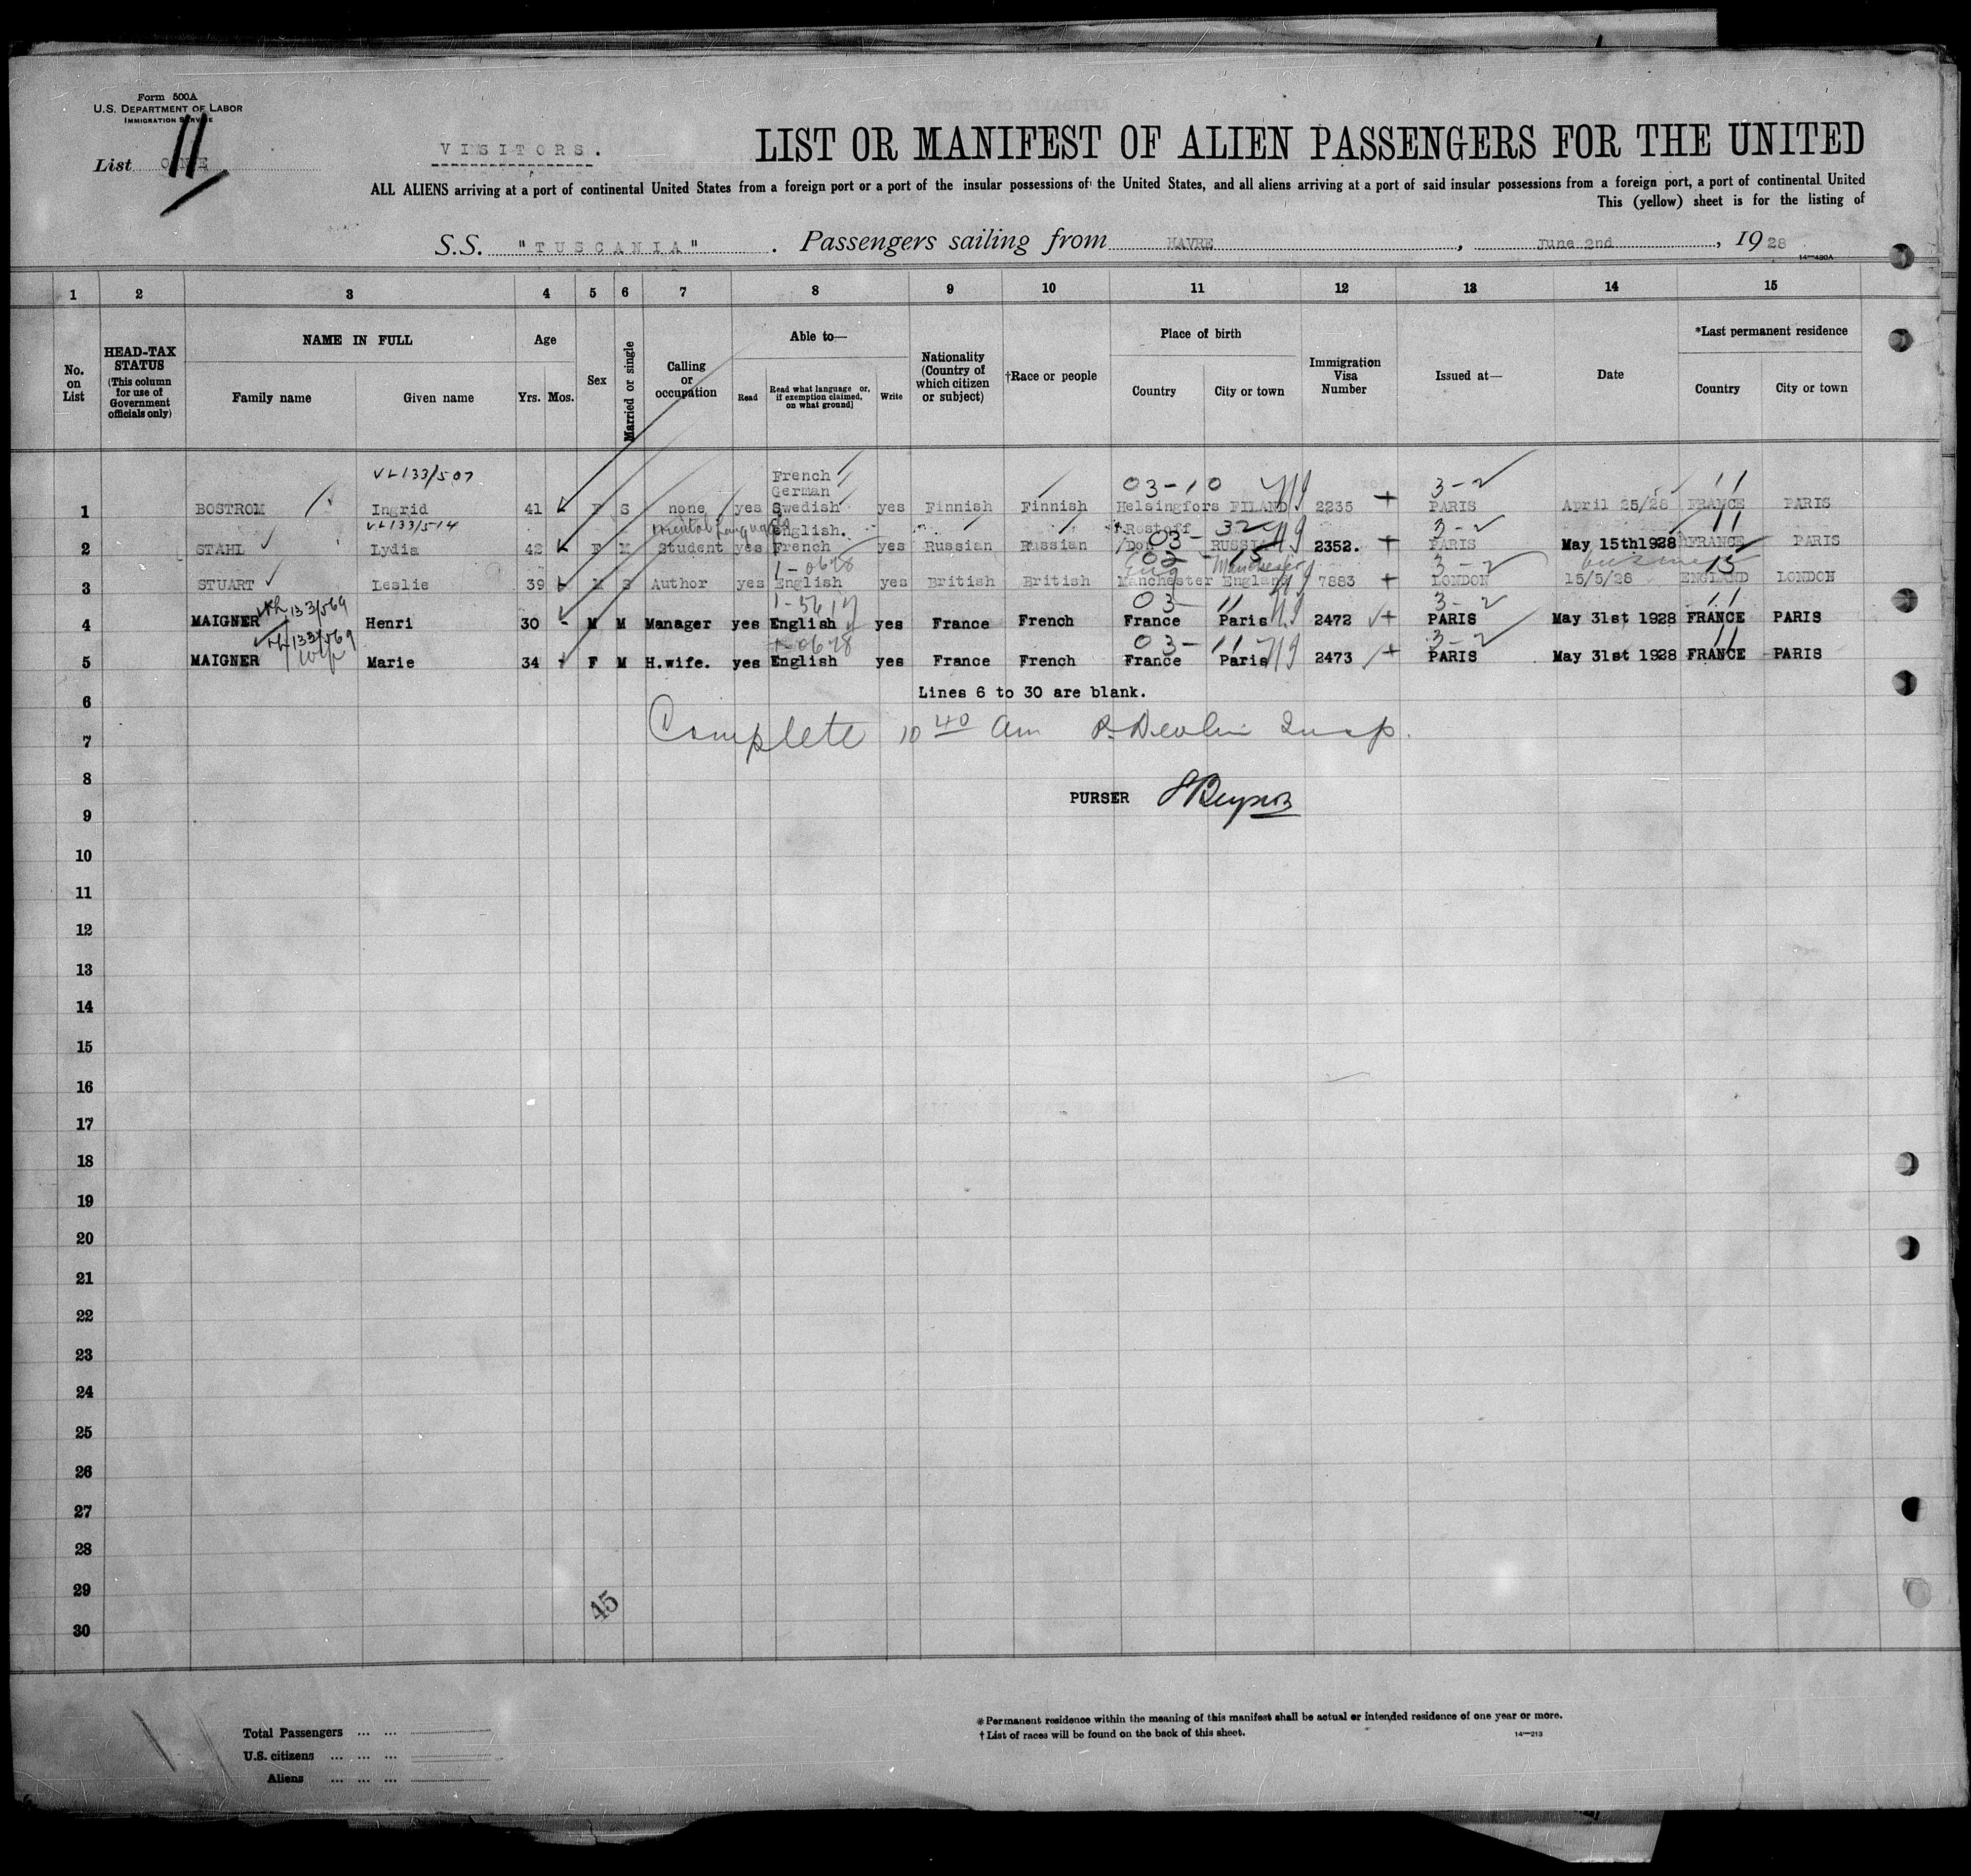 Form 500A
U.S. DEPARTMENT OF LABOR
IMMIGRATION SERVICE
11
List ONE
VISITORS.
LIST OR MANIFEST OF ALIEN PASSENGERS FOR THE UNITED
ALL ALIENS arriving at a port of continental United States from a foreign port or a port of the insular possessions of the United States, and all aliens arriving at a port of said insular possessions from a foreign port, a port of continental United
This (yellow) sheet is for the listing of
S.S. "TUSCANIA". Passengers sailing from HAVRE, June 2nd, 1928
14—430A
1 2 3 4 5 6 7 8 9 10 11 12 13 14 15
No. on List
HEAD-TAX STATUS (This column for use of Government officials only)
NAME IN FULL
Family name Given name
Age
Yrs. Mos.
Sex
Married or single
Calling or occupation
Able to—
Read Read what language or, if exemption claimed, on what ground] Write
Nationality (Country of which citizen or subject)
†Race or people
Place of birth
Country City or town
Immigration Visa Number
Issued at—
Date
*Last permanent residence
Country City or town
VL133/507 French 03-10 3-2 11
German
1 BOSTROM Ingrid 41 F S none yes Swedish yes Finnish Finnish Helsingfors FILAND 2235 + PARIS April 25/28 FRANCE PARIS
VL133/514 Oriental Languages English. Rostoff 32 3-2 11
2 STAHL Lydia 42 F M Student yes French yes Russian Russian /Don 03- RUSSIA 2352. + PARIS May 15th1928 FRANCE PARIS
1-0628 02-15 Eng Manchester 3-2 business 15
3 STUART Leslie 39 M S Author yes English yes British British Manchester England 7883 + LONDON 15/5/28 ENGLAND LONDON
133/569 03- 11 3-2 11
4 MAIGNER Henri 30 - M M Manager yes English yes France French France Paris 2472 + PARIS May 31st 1928 FRANCE PARIS
133/569 wife 1-0628 03-11 3-2 11
5 MAIGNER Marie 34 - F M H.wife. yes English yes France French France Paris 2473 + PARIS May 31st 1928 FRANCE PARIS
Lines 6 to 30 are blank.
6
Complete 10 40 am P. Devlin Insp.
7
8
PURSER
9
10
11
12
13
14
15
16
17
18
19
20
21
22
23
24
25
26
27
28
29
45
30
Total Passengers ... ...
U.S. citizens ... ... ...
Aliens ... ... ...
*Permanent residence within the meaning of this manifest shall be actual or intended residence of one year or more.
†List of races will be found on the back of this sheet.
14—213